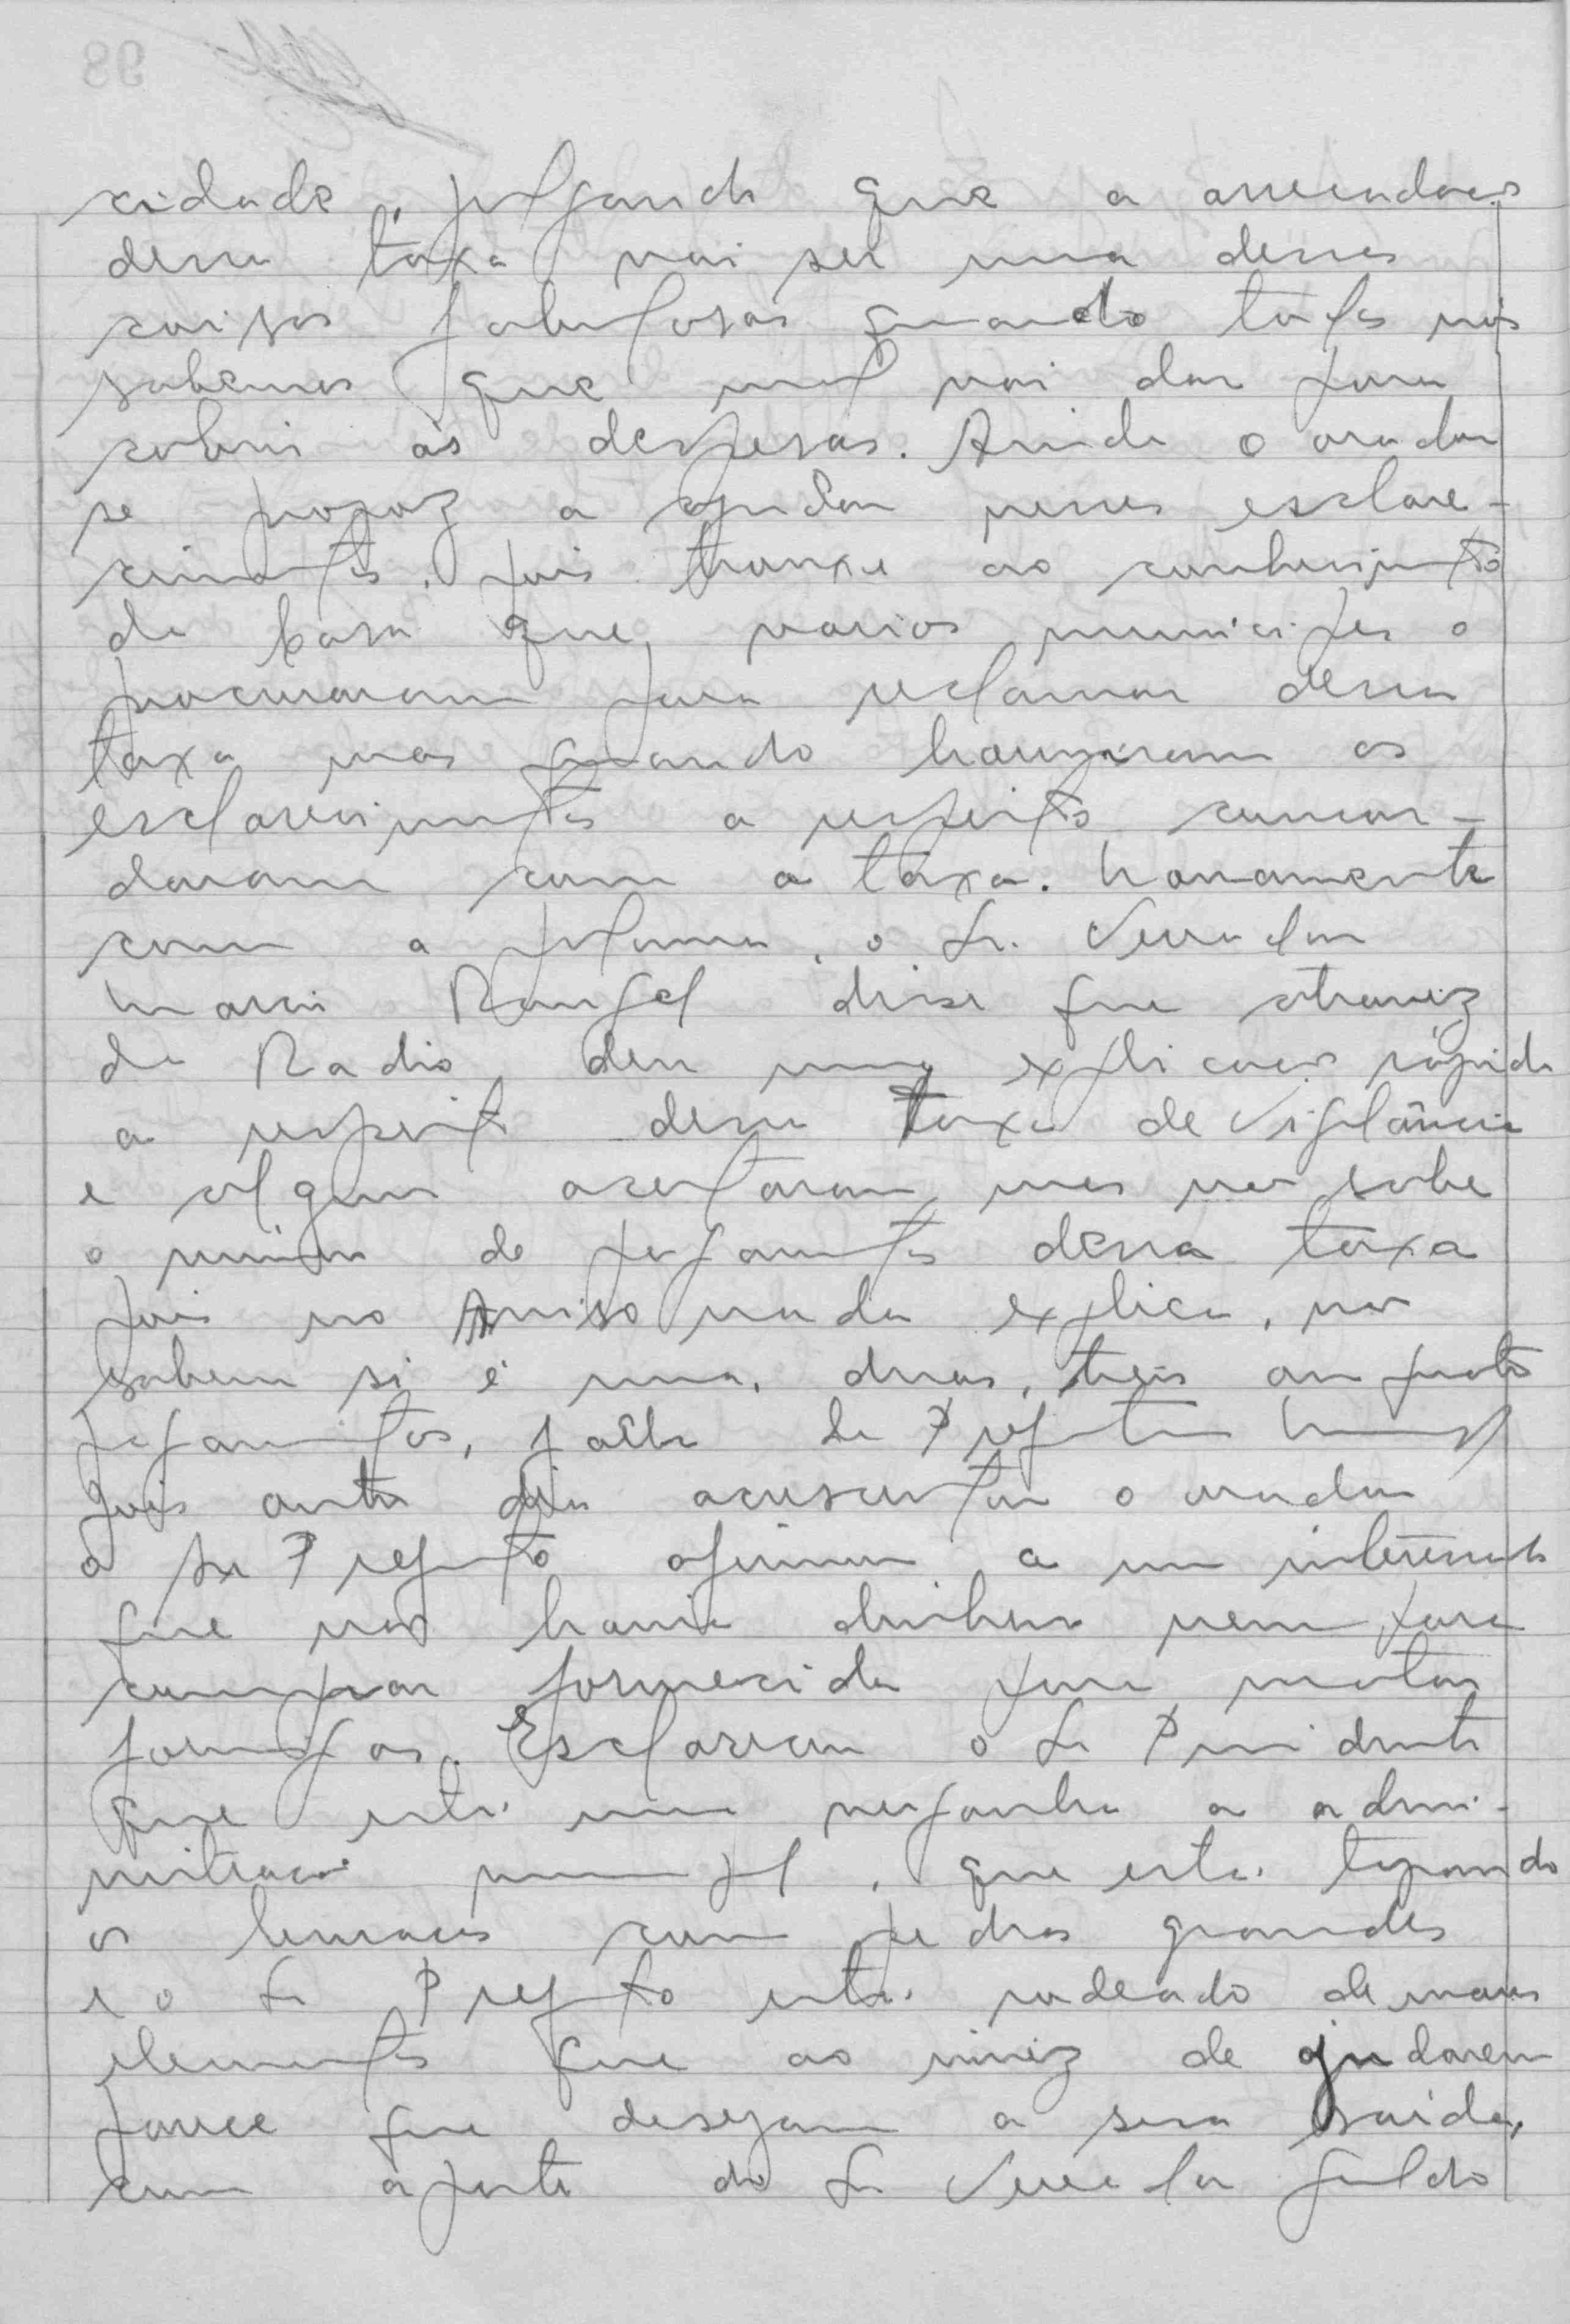 cidade, julgando que a arrecadação
dessa taxa vai ser uma dessas
coisas fabulosas quando todos nós
sabemos que mal vai dar para
cobrir as despesas. Ainda o orador
se propoz a ajudar nesses esclare-
cimentos, pois trouxe ao conhecimento
da Casa que varios municipes o
procuraram para reclamar dessa
taxa mas quando houveram os
esclarecimentos a respeito concor-
daram com a taxa. Novamente
com a palavra, o Sr. Vereador
Mario Rangel disse que atravez
da Radio deu uma explicação rápida
a respeito dessa taxa de Vigilância
e alguns aceitaram, mas não sabe
o número de pagamentos dessa taxa
pois no Aviso nada explica, não
sabem si é uma, duas, treis ou quatro
pagamentos, falha da Prefeitura Municipal
pois outro dia acrescentou o orador
o Sr Prefeito afirmou a um interessado
que não havia dinheiro nem para
comprar formicida para matar
formigas. Esclareceu o Sr Presidente
que está uma vergonha a admi-
nistração municipal, que está tapando
os buracos com pedras grandes
e o Sr Prefeito está rodeado de maus
elementos que ao invez de ajudarem
parece que desejam a sua saída,
com aparte do Sr Vereador Galdo